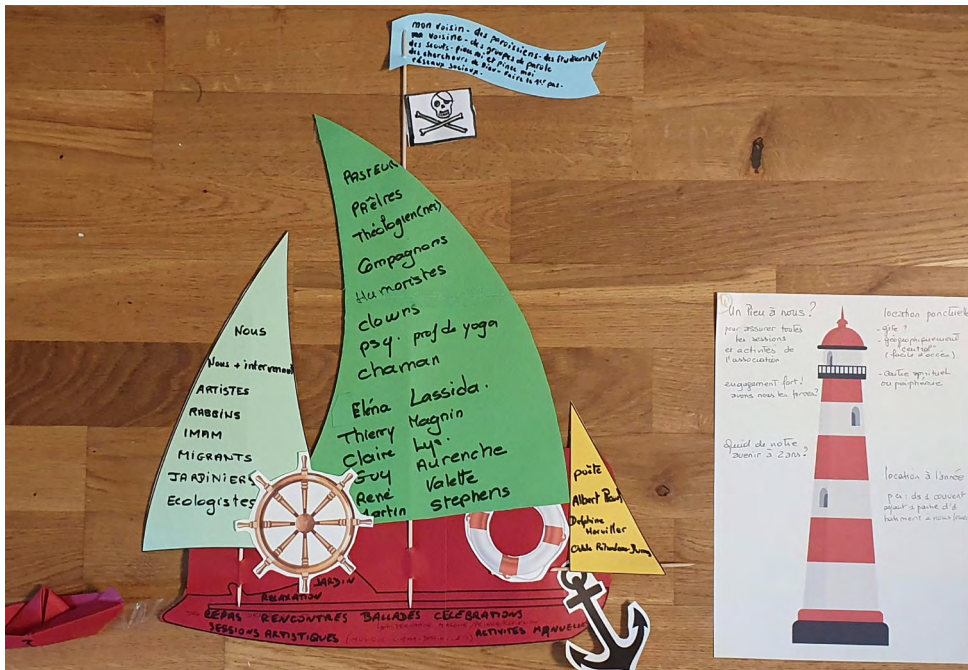 mon voisin - des paroissiens - des étudiant(e)s
ma voisine - des groupes de parole
des scouts - pince moi et pince moi
des chercheurs de Dieu - Faire le 1er pas.
réseaux sociaux.
PASTEUR
PRÊTRES
Théologien(nes)
Compagnons
Humoristes
clowns
psy. prof de yoga
chaman
Eléna Lassida.
Thierry Magnin
Claire Ly.
Guy Aurenche
René Valette
Martin Stephens
NOUS
Nous + intervenant
ARTISTES
RABBINS
IMAM
MIGRANTS
JARDINIERS
Ecologistes
poète
Albert
Delphine
Horviller
JARDIN
RELAXATION
REPAS RENCONTRES BALLADES CÉLÉBRATIONS
SESSIONS ARTISTIQUES ACTIVITÉS MANUELLE
Un lieu à nous?
pour assurer toutes
les sessions
et activités de
l'association
engagement fort!
avons nous les forces?
Quid de notre
avenir à 2 ans?
location ponctuelle
- gîte?
- géographiquement
central
(facile d'accès)
- centre spirituel
ou périphérie
location à l'année
p ex: ds 1 couvent